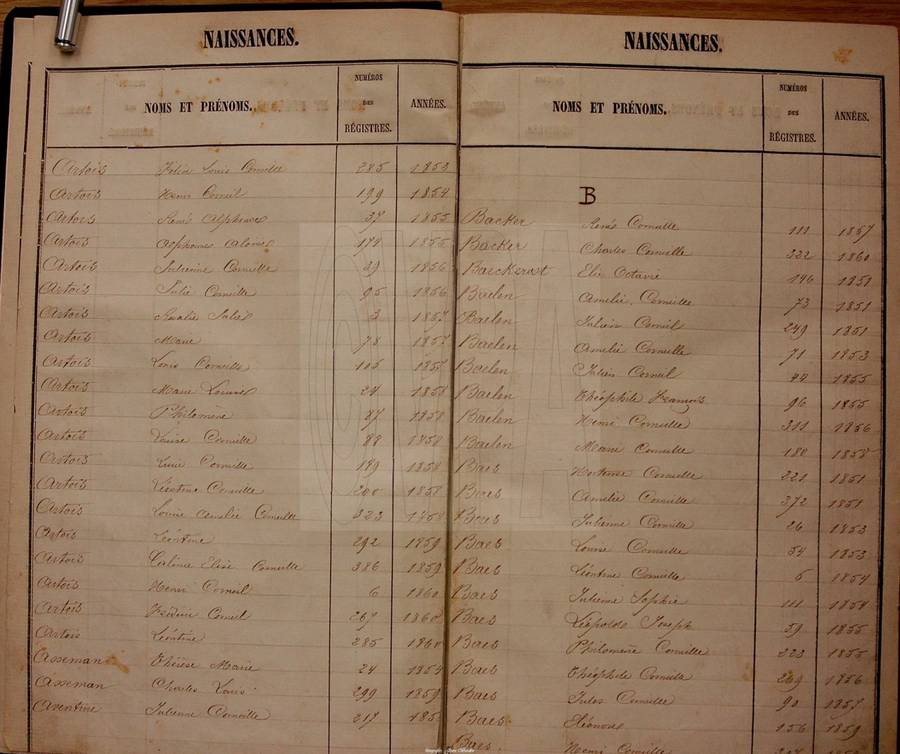 NAISSANCES.
NOMS ET PRÉNOMS. NUMÉROS DES RÉGISTRES. ANNÉES.
Artois Félix Louis Corneille 285 1853
Artois Henri Corneil 199 1854
Artois René Alphonse 37 1855
Artois Alphonse Aloïse 174 1855
Artois Julienne Corneille 29 1856
Artois Julie Corneille 95 1856
Artois Amélie Julie 2 1857
Artois Marie 78 1857
Artois Louis Corneille 105 1857
Artois Marie Louise 24 1858
Artois Philomène 87 1858
Artois Louise Corneille 88 1858
Artois Corneille 189 1858
Artois Léontine Corneille 200 1858
Artois Louise Amélie Corneille 323 1858
Artois Léontine 292 1859
Artois Elise Corneille 386 1859
Artois Henri Corneil 6 1860
Artois Corneil 267 1860
Artois Léontine 285 1860
Asseman Thérèse Marie 24 1854
Asseman Charles Louis 299 1859
Aventine Julienne Corneille 217
NAISSANCES.
NOMS ET PRÉNOMS. NUMÉROS DES RÉGISTRES. ANNÉES.
B
Backer Renée Corneille 111 1857
Backer Charles Corneille 322 1860
Elie Octavie 146 1851
Baelen Amélie Corneille 73 1851
Baelen Julien Corneil 249 1851
Baelen Amélie Corneille 71 1853
Baelen Julien Corneil 1855
Baelen Théophile François 96 1855
Baelen Henri Corneille 311 1856
Baelen Marie Corneille 180 1858
Baes Hortense Corneille 221 1851
Baes Amélie Corneille 372 1851
Baes Julienne Corneille 26 1853
Baes Louise Corneille 54 1853
Baes Léontine Corneille 6 1854
Baes Julienne Sophie 111 1854
Baes Léopolde Joseph 59 1855
Baes Philomène Corneille 323 1855
Baes Théophile Corneille 1856
Baes Jules Corneille 90 1857
Baes Léonore 156 1859
Baes Henri Corneille